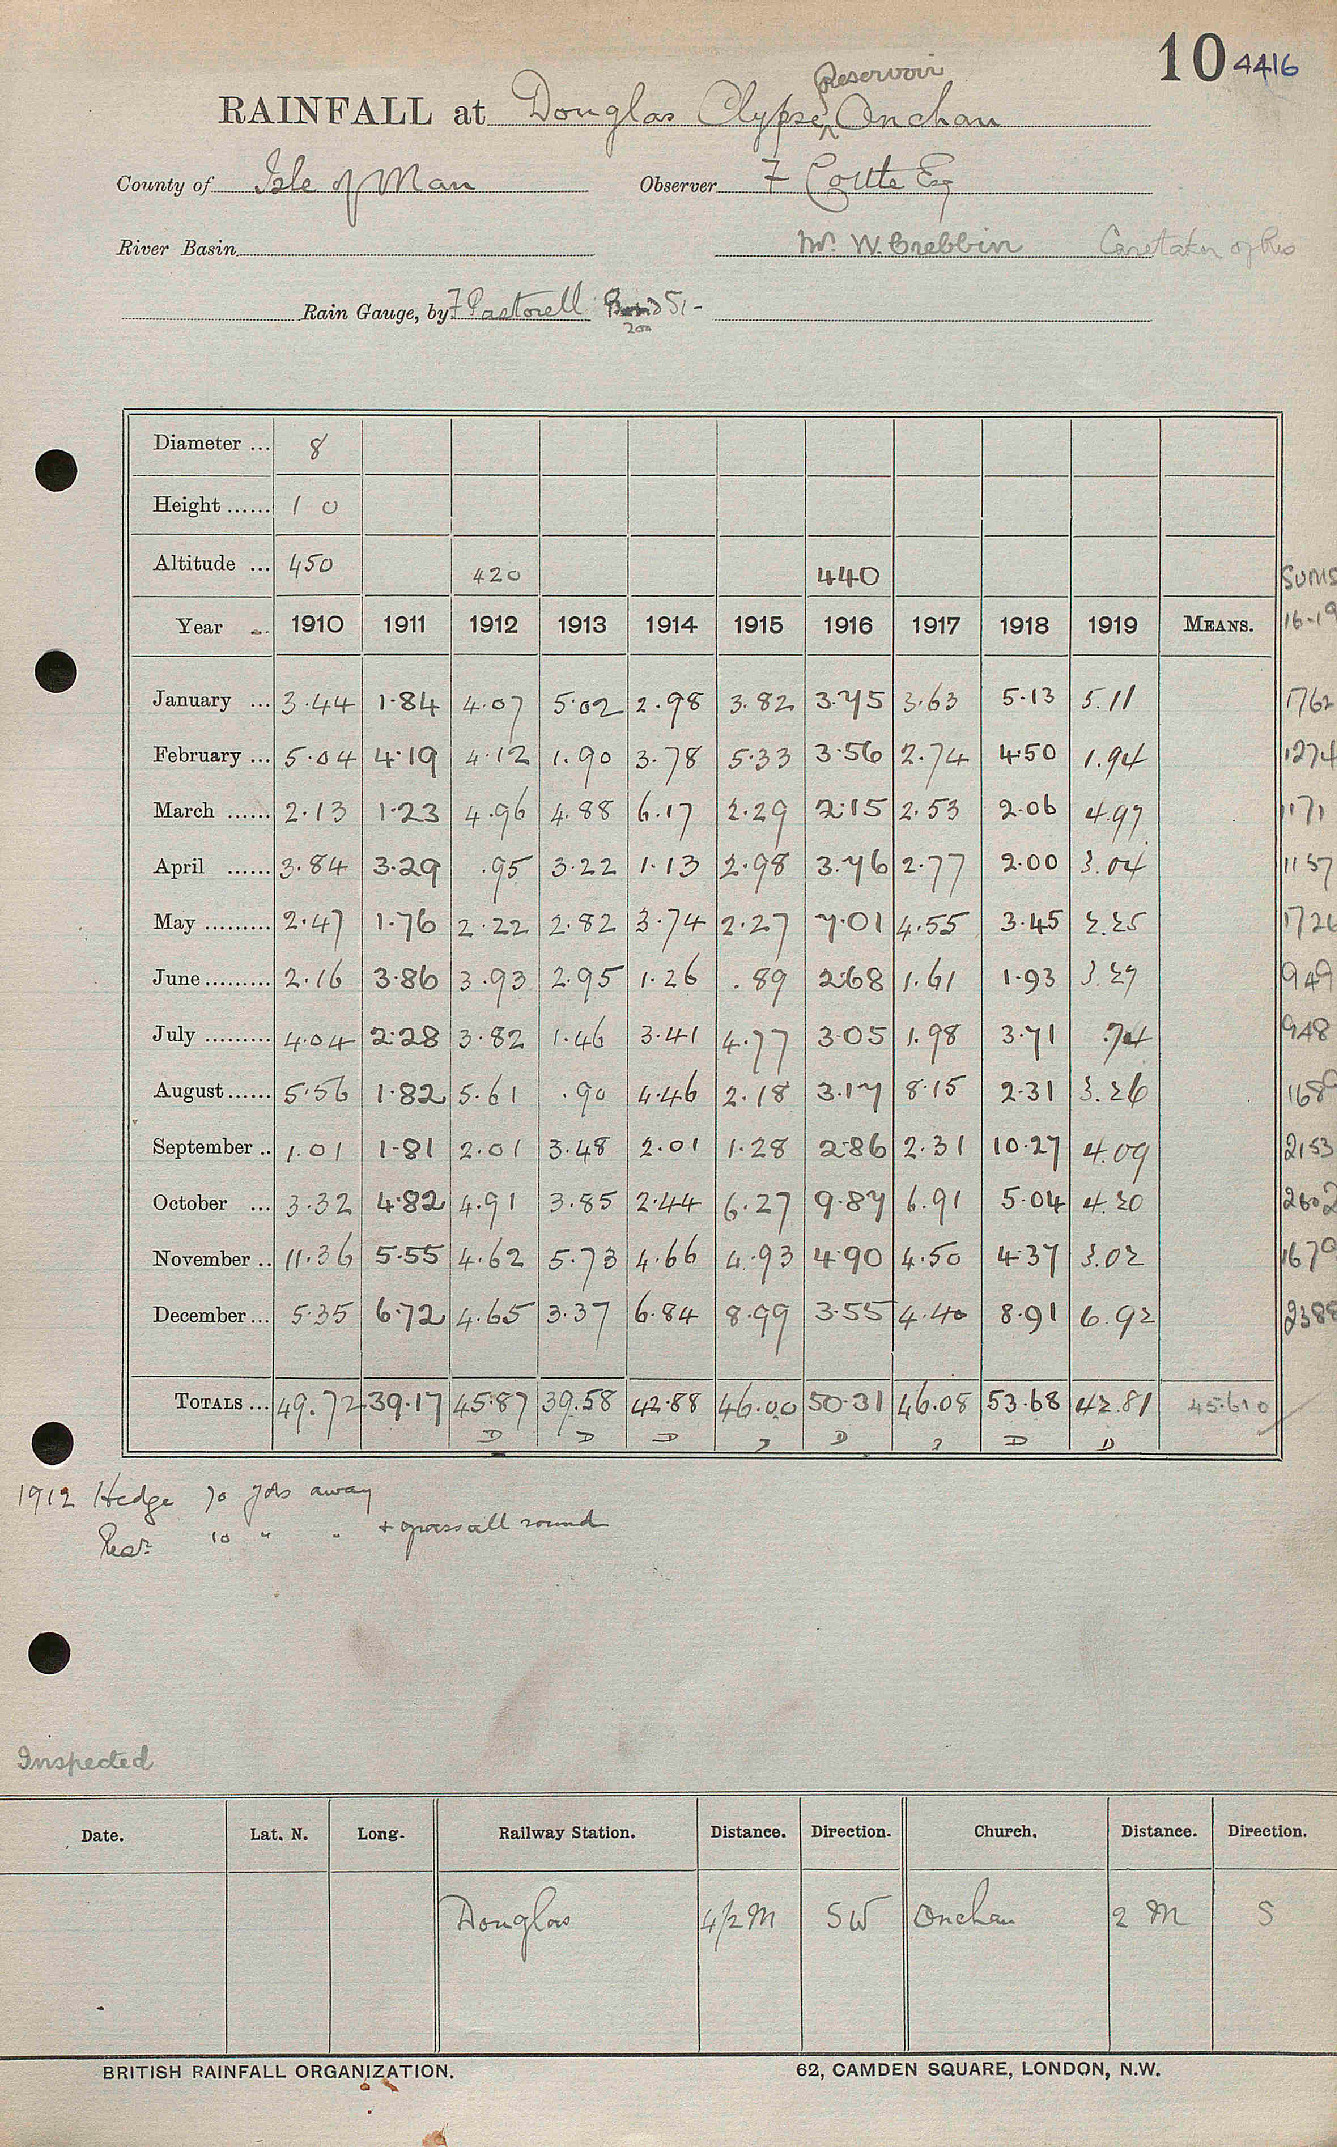 10 4416
Reservoir
RAINFALL at Douglas Clypse Onchan
County of Isle of Man Observer F Cottle Esq
River Basin Mr. W. Crebbin Caretaker of Res
Rain Gauge, by F Pastorell
Diameter ... 8
Height ...... 1 0
Altitude ... 450 420 440 SUMS
Year ... 1910 1911 1912 1913 1914 1915 1916 1917 1918 1919 MEANS. 16-19
January ... 3.44 1.84 4.07 5.02 2.98 3.82 3.75 3.63 5.13 5.11 1762
February ... 5.04 4.19 4.12 1.90 3.78 5.33 3.56 2.74 4.50 1.94 1274
March ...... 2.13 1.23 4.96 4.88 6.17 2.29 2.15 2.53 2.06 4.97 1171
April ...... 3.84 3.29 .95 3.22 1.13 2.98 3.76 2.77 2.00 3.04 1157
May ......... 2.47 1.76 2.22 2.82 3.74 2.27 7.01 4.55 3.45 2.25 1726
June ......... 2.16 3.86 3.93 2.95 1.26 .89 2.68 1.61 1.93 3.27 949
July ......... 4.04 2.28 3.82 1.46 3.41 4.77 3.05 1.98 3.71 .74 948
August ...... 5.56 1.82 5.61 .90 4.46 2.18 3.17 8.15 2.31 3.26 1689
September .. 1.01 1.81 2.01 3.48 2.01 1.28 2.86 2.31 10.27 4.09 2153
October ... 3.32 4.82 4.91 3.85 2.44 6.27 9.87 6.91 5.04 4.20 2602
November .. 11.36 5.55 4.62 5.73 4.66 4.93 4.90 4.50 4.37 3.02 1679
December ... 5.35 6.72 4.65 3.37 6.84 8.99 3.55 4.40 8.91 6.92 2388
TOTALS ... 49.72 39.17 45.87 39.58 42.88 46.00 50.31 46.08 53.68 42.81 45.610
D D D D D D
1912 Hedge away
10 " " + grass all round
Inspected
Date. Lat. N. Long. Railway Station. Distance. Direction. Church. Distance. Direction.
Douglas 4½ M SW Onchan 2 M S
BRITISH RAINFALL ORGANIZATION. 62, CAMDEN SQUARE, LONDON, N.W.